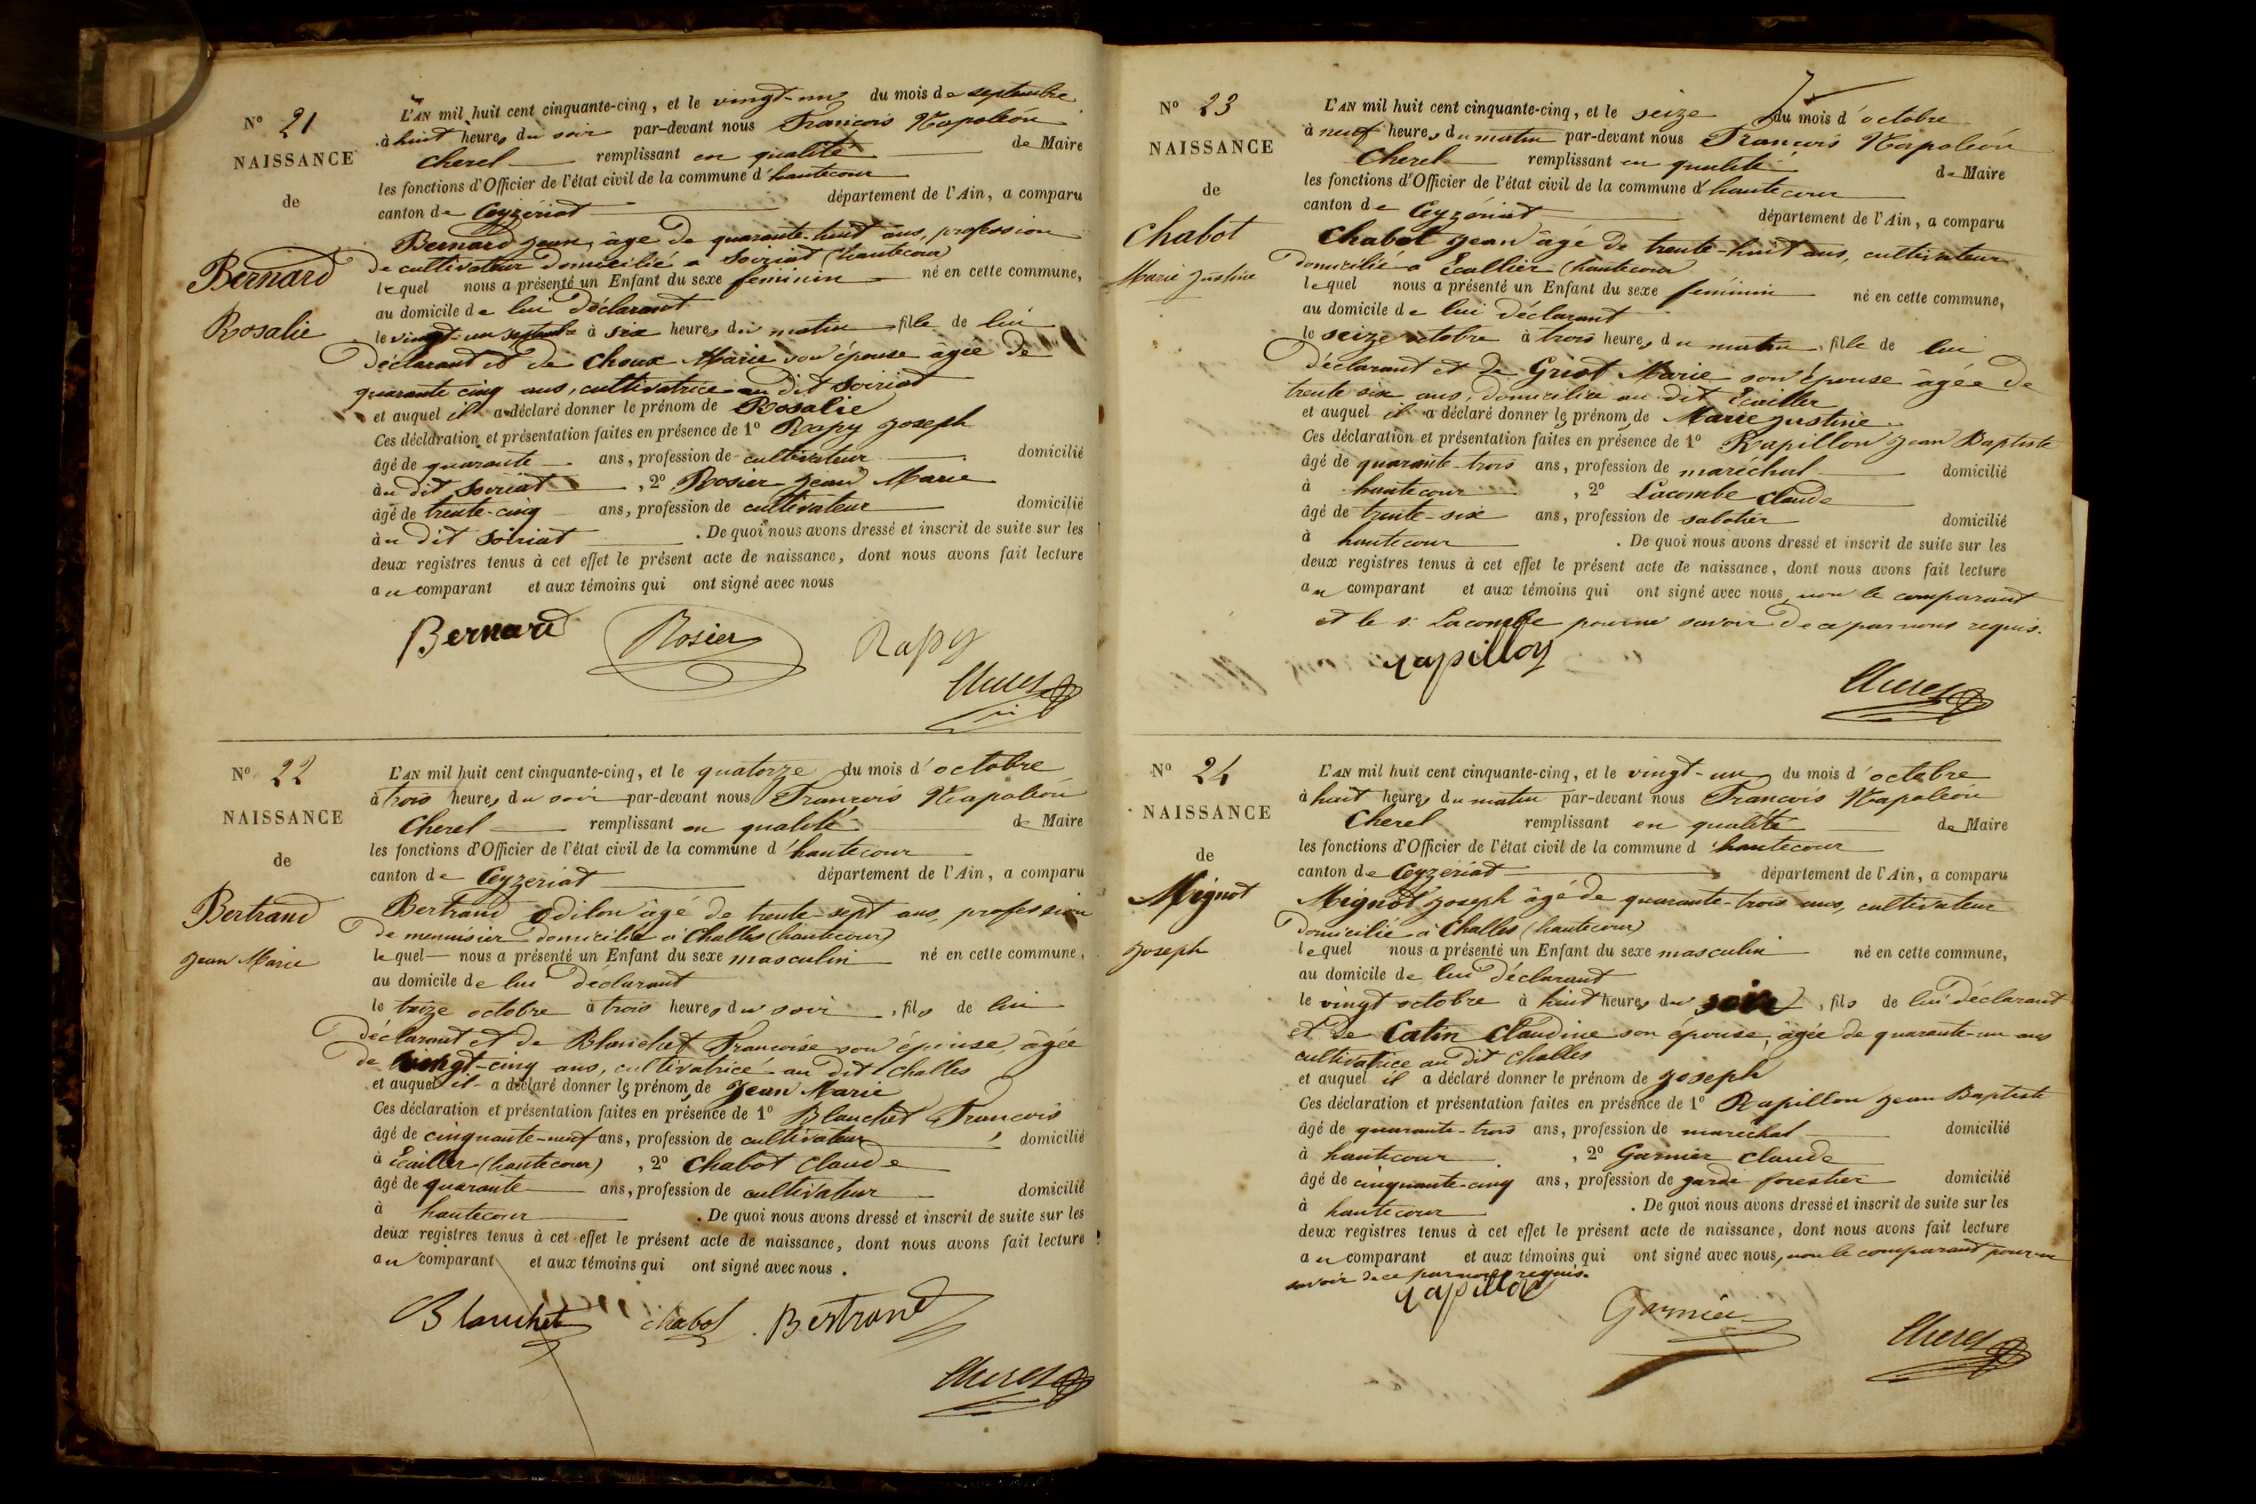 N° 21
NAISSANCE
de
Bernard
Rosalie
L'AN mil huit cent cinquante-cinq, et le vingt-un du mois de septembre
à huit heures du soir par-devant nous François Napoléon
Cherel remplissant en qualité de Maire
les fonctions d'Officier de l'état civil de la commune d'hautecour
canton de Ceyzériat département de l'Ain, a comparu
Bernard Jean, âgé de quarante-huit ans, profession
de cultivateur domicilié a Soiriat (hautecour)
lequel nous a présenté un Enfant du sexe féminin né en cette commune,
au domicile de lui déclarant
le vingt-un septembre à six heures du matin, fille de lui
déclarant et de Choux Marie son épouse âgée de
quarante cinq ans, cultivatrice au dit Soiriat
et auquel il a déclaré donner le prénom de Rosalie
Ces déclaration et présentation faites en présence de 1° Rapy Joseph
âgé de quarante ans, profession de cultivateur domicilié
au dit Soiriat, 2° Rosier Jean Marie
âgé de trente-cinq ans, profession de cultivateur domicilié
au dit Soiriat. De quoi nous avons dressé et inscrit de suite sur les
deux registres tenus à cet effet le présent acte de naissance, dont nous avons fait lecture
au comparant et aux témoins qui ont signé avec nous
Bernard Rosier Rapy
Cherel
N° 22
NAISSANCE
de
Bertrand
Jean Marie
L'AN mil huit cent cinquante-cinq, et le quatorze du mois d'octobre
à trois heures du soir par-devant nous François Napoléon
Cherel remplissant en qualité de Maire
les fonctions d'Officier de l'état civil de la commune d'hautecour
canton de Ceyzériat département de l'Ain, a comparu
Bertrand Odilon âgé de trente-sept ans, profession
de menuisier domicilié à Challes (hautecour)
lequel nous a présenté un Enfant du sexe masculin né en cette commune,
au domicile de lui déclarant
le treize octobre à trois heures du soir, fils de lui
déclarant et de Blanchet Francoise son épouse, âgée
de vingt-cinq ans, cultivatrice au dit Challes
et auquel il a déclaré donner les prénoms de Jean Marie
Ces déclaration et présentation faites en présence de 1° Blanchet François
âgé de cinquante-neuf ans, profession de cultivateur domicilié
à Ecailler (hautecour), 2° Chabot Claude
âgé de quarante ans, profession de cultivateur domicilié
à hautecour. De quoi nous avons dressé et inscrit de suite sur les
deux registres tenus à cet effet le présent acte de naissance, dont nous avons fait lecture
au comparant et aux témoins qui ont signé avec nous.
Blanchet Chabot Bertrand
Cherel
N° 23
NAISSANCE
de
Chabot
Marie Justine
L'AN mil huit cent cinquante-cinq, et le seize du mois d'octobre
à neuf heures du matin par-devant nous François Napoléon
Cherel remplissant en qualité de Maire
les fonctions d'Officier de l'état civil de la commune d'hautecour
canton de Ceyzériat département de l'Ain, a comparu
Chabot Jean âgé de trente-huit ans, cultivateur
domicilié a Ecallier (hautecour)
lequel nous a présenté un Enfant du sexe féminin né en cette commune,
au domicile de lui déclarant
le seize octobre à trois heures du matin, fille de lui
déclarant et de Griot Marie son épouse âgée de
trente six ans, domiciliée au dit Ecailler
et auquel il a déclaré donner les prénoms de Marie Justine
Ces déclaration et présentation faites en présence de 1° Rapillon Jean Baptiste
âgé de quarante-trois ans, profession de maréchal domicilié
à hautecour, 2° Lacombe Claude
âgé de trente-six ans, profession de sabotier domicilié
à hautecour. De quoi nous avons dressé et inscrit de suite sur les
deux registres tenus à cet effet le présent acte de naissance, dont nous avons fait lecture
au comparant et aux témoins qui ont signé avec nous, non le comparant
et le s. Lacombe pour ne savoir de ce par nous requis.
Rapillon
Cherel
N° 24
NAISSANCE
de
Mignot
Joseph
L'AN mil huit cent cinquante-cinq, et le vingt-un du mois d'octobre
à huit heures du matin par-devant nous François Napoléon
Cherel remplissant en qualité de Maire
les fonctions d'Officier de l'état civil de la commune d'hautecour
canton de Ceyzériat département de l'Ain, a comparu
Mignot Joseph âgé de quarante-trois ans, cultivateur
domicilié à Challes (hautecour)
lequel nous a présenté un Enfant du sexe masculin né en cette commune,
au domicile de lui déclarant
le vingt octobre à huit heures du soir, fils de lui déclarant
et de Catin Claudine son épouse, âgée de quarante-un ans
cultivatrice au dit Challes
et auquel il a déclaré donner le prénom de Joseph
Ces déclaration et présentation faites en présence de 1° Rapillon Jean Baptiste
âgé de quarante-trois ans, profession de maréchal domicilié
à hautecour, 2° Garnier Claude
âgé de cinquante-cinq ans, profession de garde forestier domicilié
à hautecour. De quoi nous avons dressé et inscrit de suite sur les
deux registres tenus à cet effet le présent acte de naissance, dont nous avons fait lecture
au comparant et aux témoins qui ont signé avec nous, non le comparant pour ne
savoir de ce par nous requis.
Rapillon
Garnier
Cherel